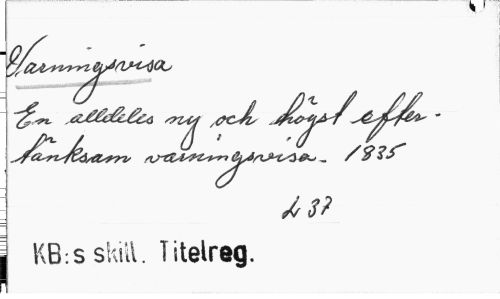 Varningsvisa
En alldeles ny och högst efter-
tänksam varningsvisa. 1835
L 37
KB:s skill. Titelreg.